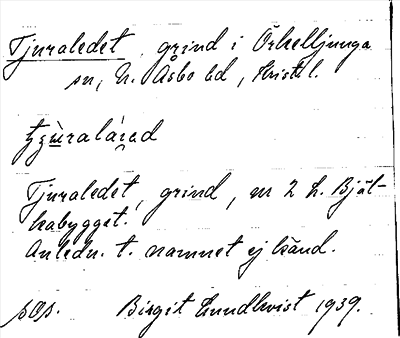 Tjuraledet, grind i Örkelljunga
sn, N. Åsbo hd, Krist. l.
Tjuraledet, grind, nr 2 h. Bjäl-
kabygget.
Anledn. t. namnet ej känd.
sOp. Birgit Lundkvist 1939.